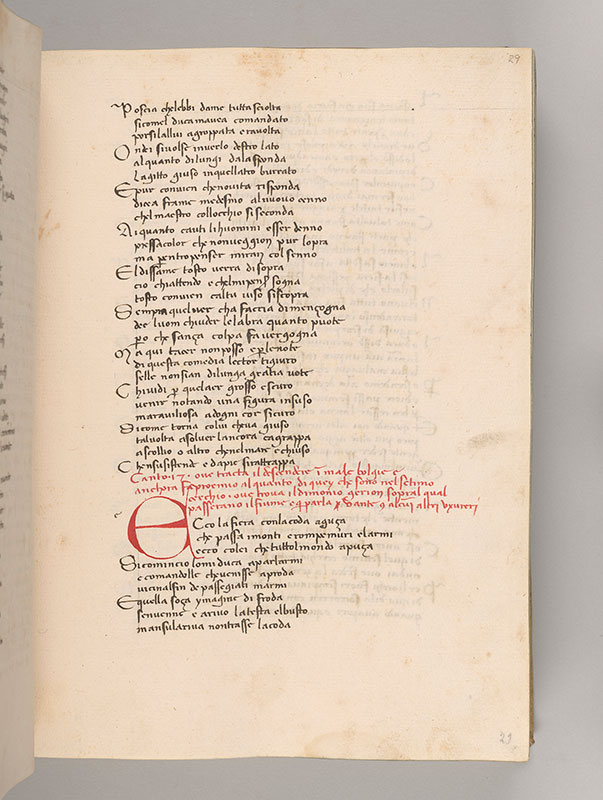 29
Poscia chelebbi dame tutta sciolta
sicomel duca mavea comandato
porsilallui agroppata e ravolta
Ondei sivolse inverlo destro lato
alquanto dilungi dalasponda
lagitto giuso inquellalto burrato
Epur convien chenovita risponda
dicea frame medesmo alnuovo cenno
chelmaestro collocchio siseconda
Ai quanto cauti lihuomini esser denno
pressacolor che nonveggion pur lopra
ma pentropenser miran colsenno
Eldissame tosto verra disopra
cio chiattendo e chelmipensier sogna
tosto convien caltu viso siscopra
Sempra quelver cha faccia dimençogna
dee luom chiuder lelabra quanto puote
pero che sança colpa fa vergogna
Ma qui tacer nonposso e perlenote
diquesta comedia lector tigiuro
selle nonsian dilunga gratia vote
Chividi per quelaer grosso e scuro
venir notando una figura insuso
maravilliosa adogni cor sicuro
Sicome torna colui cheva giuso
talvolta asolver lancora cagrappa
ascollio o altro chenelmare e chiuso
Chensusistende e dapie sirattrappa
Canto 17. ove tracta il descendere in male bolge e
cerchio. ove trova ildimonio gerion sopral qual
passerano ilfiume e parla Dante altri usureri
Ecco lafiera conlacoda aguça
che passa imonti e rompemuri elarmi
ecco colei chetuttolmondo apuça
Sicomincio lomi duca aparlarmi
e comandolle chevenisse aproda
vicinalfin depassegiati marmi
Equella soça ymagine di froda
senvenne e arivo latesta elbusto
mansulariva nontrasse lacoda
29